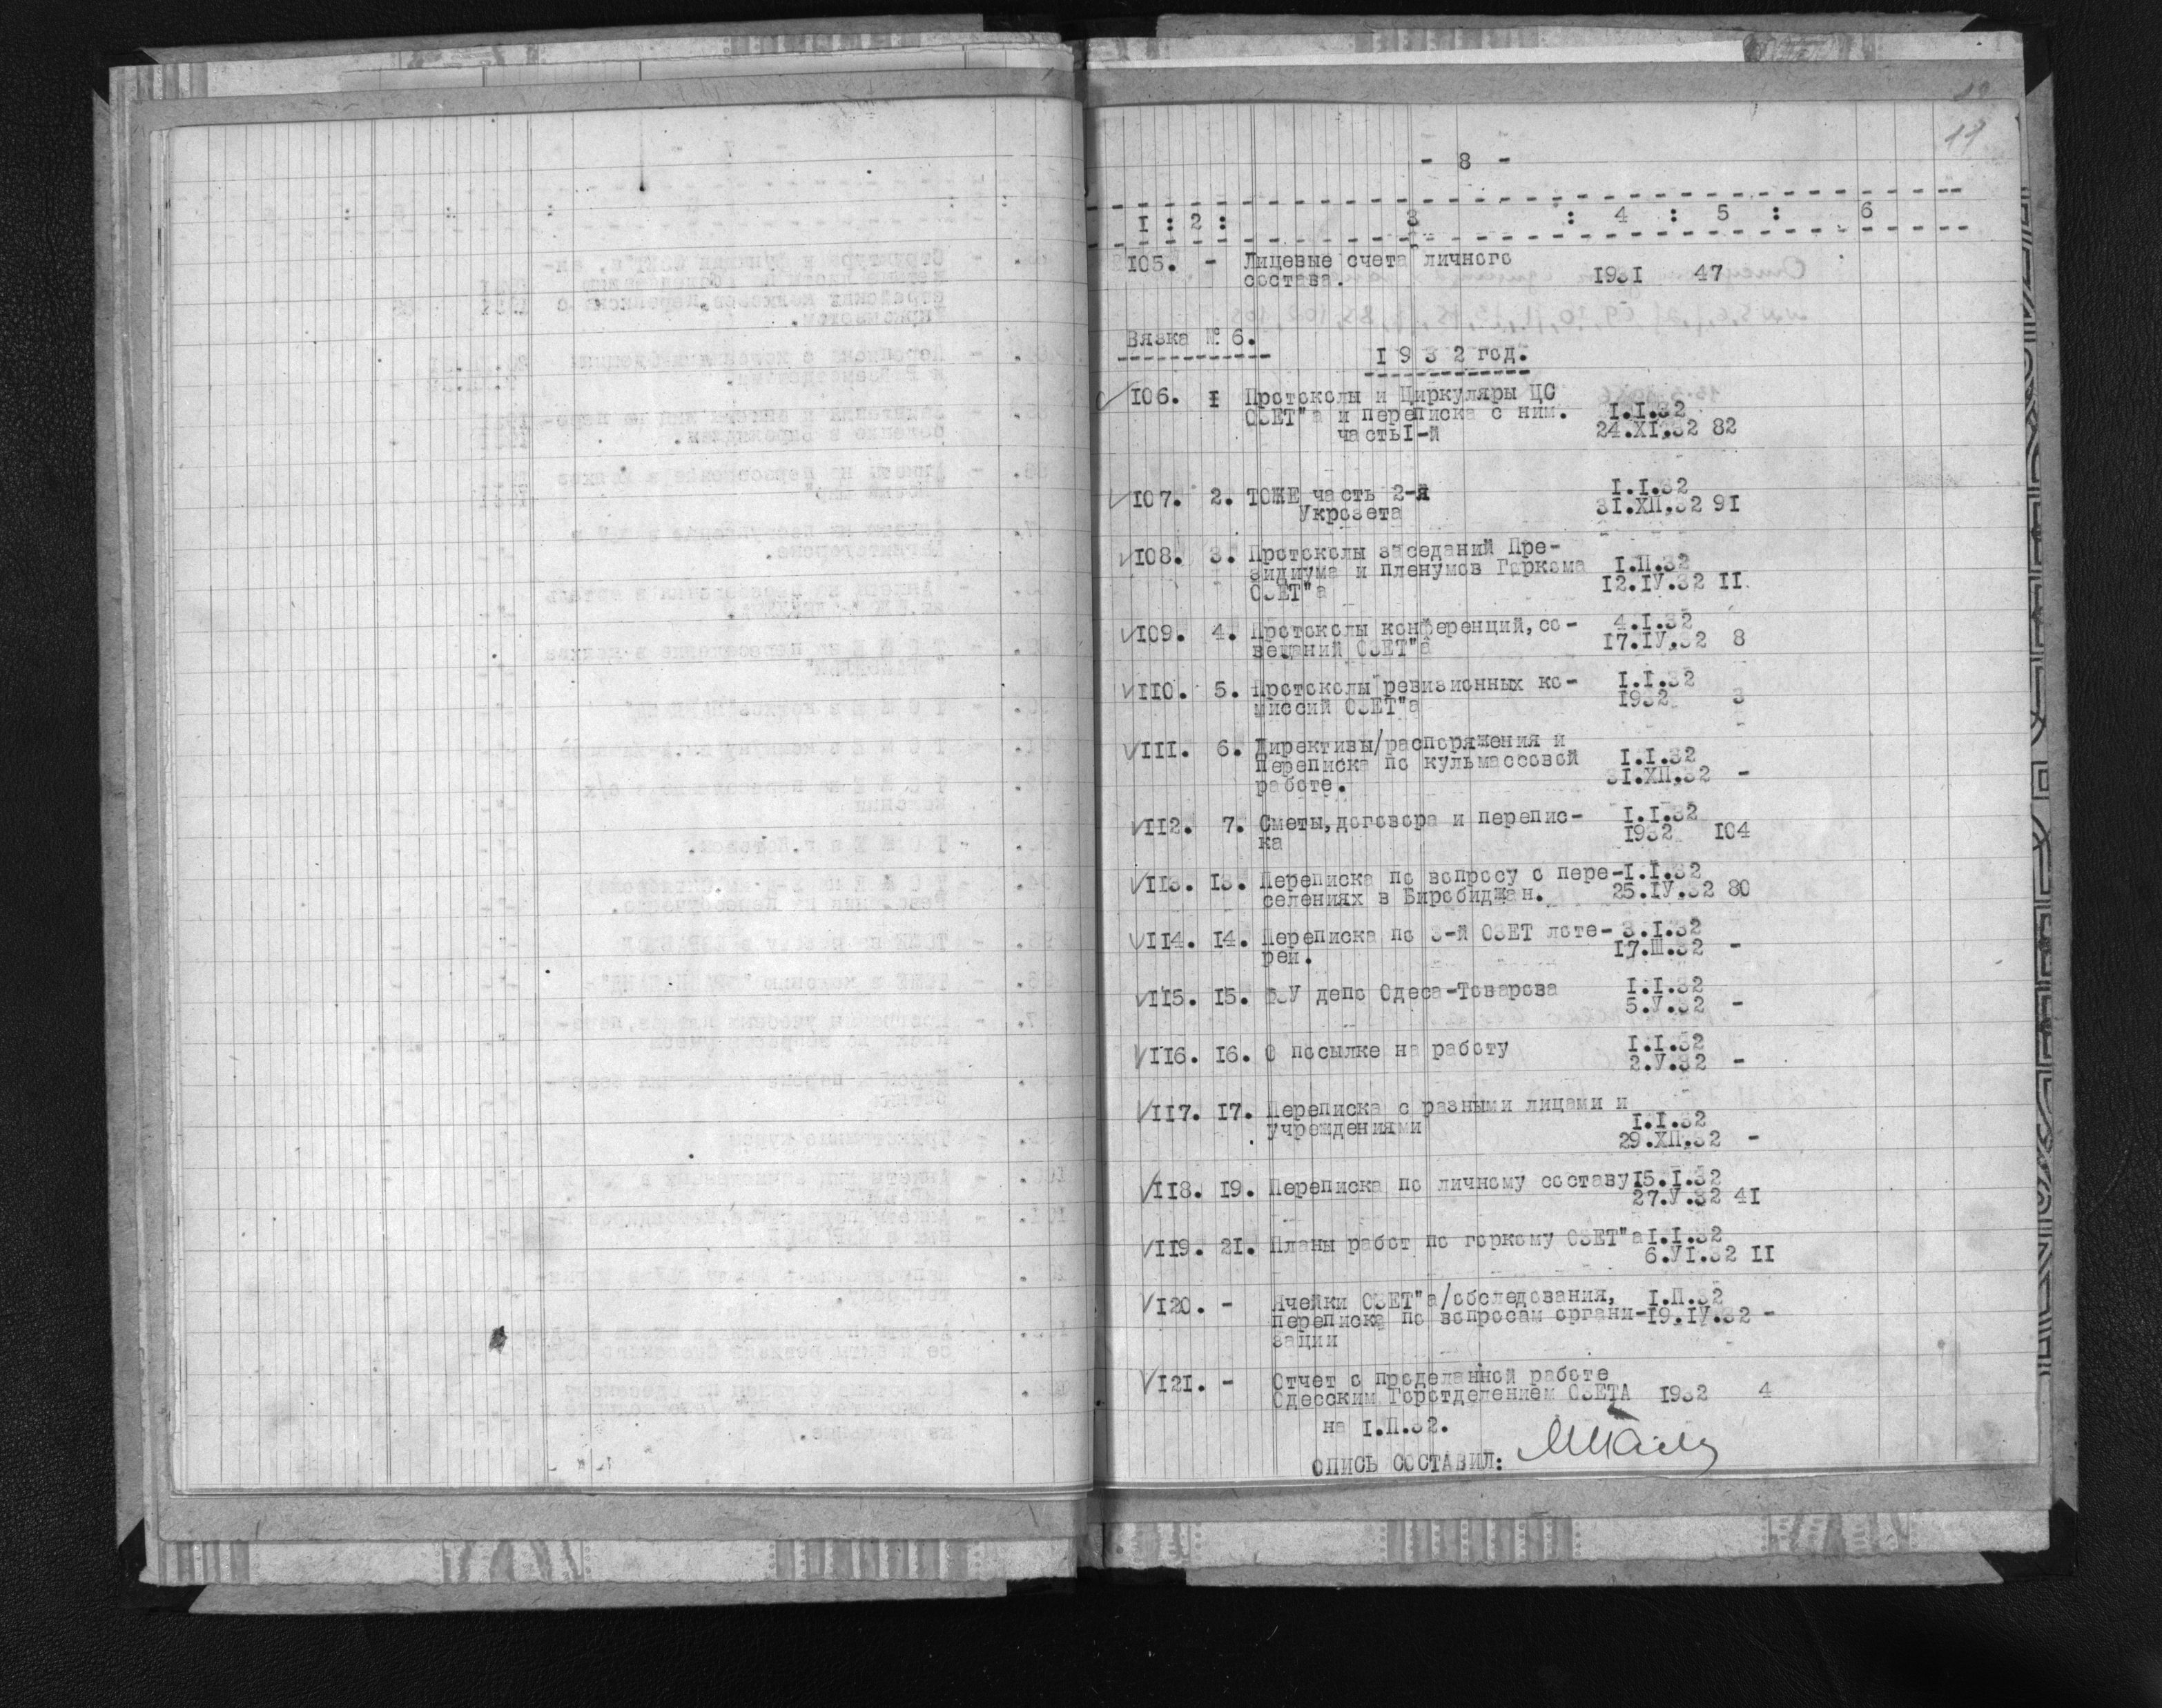 11
- 8 -
I : 2 : 3 : 4 : 5 : 6
I05. - Лицевые счета личного
состава. 1931 47
Вязка № 6.
I 9 3 2 год.
I06. I Протоколы и Циркуляры ЦС
ОЗЕТ"а и переписка с ним. I.I.32
часть I-й 24.XI.32 82
I07. 2. ТОЖЕ часть 2-я I.I.32
Укрозета 31.XП.32 91
I08. 3. Протоколы заседаний Пре-
зидиума и пленумов Горкома I.П.32
ОЗЕТ"а 12.IУ.32 II
I09. 4. Протоколы конференций, со- 4.I.32
вещаний ОЗЕТ"а 17.IУ.32 8
II0. 5. Протоколы ревизионных ко- I.I.32
миссий ОЗЕТ"а 1932 3
III. 6. Директивы/распоряжения и
переписка по культмассовой I.I.32
работе. 31.XП.32 -
II2. 7. Сметы, договора и перепис- I.I.32
ка 1932 I04
II3. I3. Переписка по вопросу о пере- I.I.32
селениях в Биробиджан. 25.IУ.32 80
II4. I4. Переписка по 3-й ОЗЕТ лоте- 3.I.32
рей. I7.Ш.32 -
II5. I5. ФЗУ депо Одеса-Товарова I.I.32
5.У.32 -
II6. I6. О посылке на работу I.I.32
2.У.32 -
II7. I7. Переписка с разными лицами и
учреждениями I.I.32
29.XП.32 -
II8. I9. Переписка по личному составу I5.I.32
27.У.32 4I
II9. 2I. Планы работ по горкому ОЗЕТ"а I.I.32
6.УI.32 II
I20. - Ячейки ОЗЕТ"а/обследования, I.П.32
переписка по вопросам органи- I9.IУ.32 -
зации
I2I. - Отчет о проделанной работе
Одесским Горотделением ОЗЕТА 1932 4
на I.П.32.
ОПИСЬ СОСТАВИЛ: